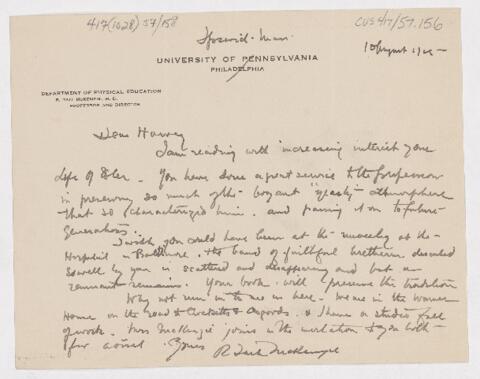 417(1028) 57/158
CUS417/57.156
Ipswich. Mass.
UNIVERSITY OF PENNSYLVANIA
PHILADELPHIA
1 August 1925
DEPARTMENT OF PHYSICAL EDUCATION
R. TAIT McKENZIE, M. D.
PROFESSOR AND DIRECTOR
Dear Harvey
I am reading with increasing interest your
Life of Osler. You have done a great service to the profession
in preserving so much of the buoyant "yeasty" atmosphere
that so characterized him, and passing it on to future
generations.
I wish you could have been at the meeting at the
Hospital in Baltimore. The band of faithful brethren described
so well by you is scattered and disappearing and but a
remnant remains. Your book will preserve the tradition
Why not run in to see us here. We are in the Warner
Home on the road to &
of work. Mrs McKenzie joins in the invitation to you both
for a visit. Yours R Tait McKenzie